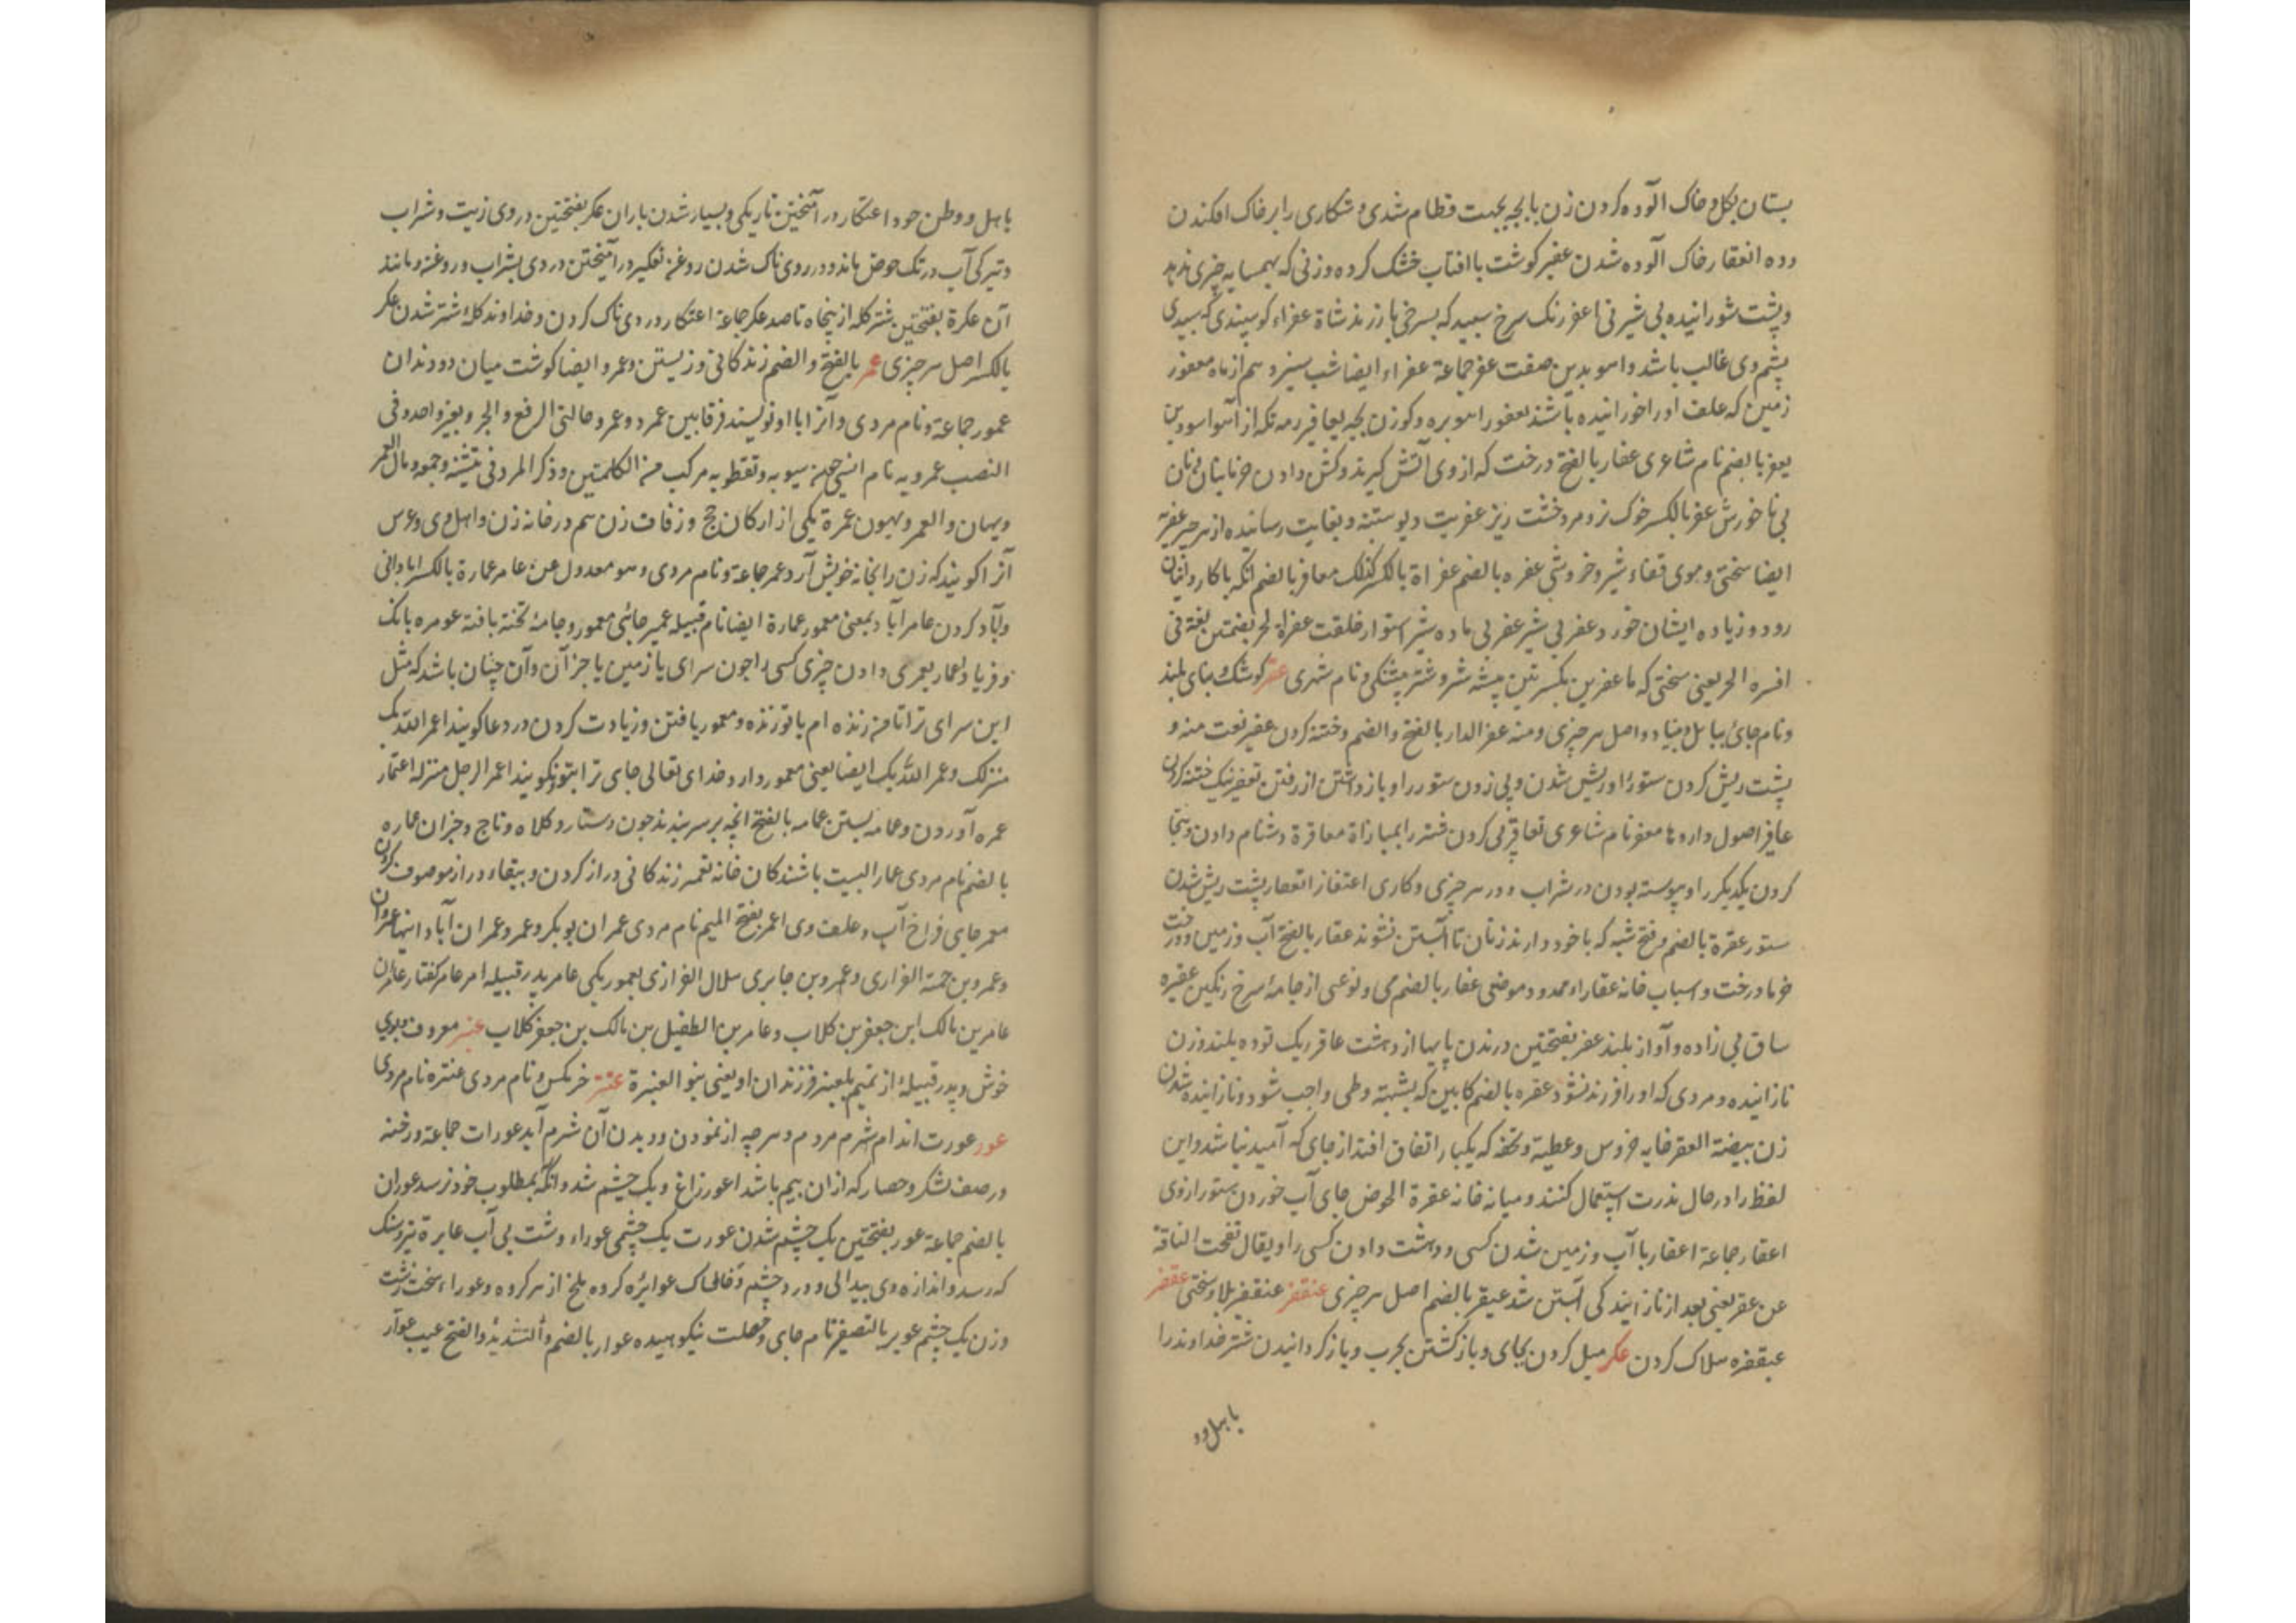 بستان بکل و خاک آلوده کردن زن با بچه بجهت فطام شدی و شکاری را بر خاک افکندن
وده انعفار خاک آلوده شدن عفیر کوشت با افتاب خشک کرده و زنی که بهمسایه چیزی ندهد
و پشت شورانیده بی شیر فی اعفر رنک سرخ سپید که بسرخی بازرند شاة عفراء کوسپندی که سپیدی
پشم وی غالب باشد و اهو بدین صفت عفر جماعة عفراء ایضا شب سیزدهم از ماه معفور
زمین که علف او را خورانیده باشند یعفور اهو بره و کوزن بچه یعافیر رمه تکه از آهو اسود بن
یعفر بالضم نام شاعری عفار بالفتح درخت که از وی آتش کیرند و کش دادن خرمابنان نان
بی ناخورش عفر بالکسر خوک نر و مرد خشت ریز عفریت دیو ستنبه و بغایت رساننده از هر چیز عفریة
ایضا سختی و موی قفاء شیر و خروشی عفره بالضم عفراة بالکسر کذلک معافر بالضم انکه با کاروانیان
رود و زیاده ایشان خورد عفرنی شیر عفرنی ماده شیر استوار خلقت عفرة الحر بضمتین لغة فی
افره الحر یعنی سختی کرما عفرین بکسرتین بیشه شیر و شتر پشکی و نام شهری عقر کوشک و بنای بلند
و نام جائی ببابل و بنیاد و اصل هر چیزی و منه عقر الدار بالفتح و الضم و خسته کردن عقیر نعت منه و
پشت ریش کردن ستور را و ریش شدن و پی زدن ستور را و باز داشتن از رفتن تعقیر نیک خسته کردن
عاقر اصول داروها معقر نام شاعری تعاقر پی کردن شتر را بمباراة معاقرة دشنام دادن و هجا
کردن یکدیکر را و پیوسته بودن در شراب و در هر چیزی و کاری اعتقار انعقار پشت ریش شدن
ستور عقرة بالضم و فتح شبه که با خود دارند زنان تا آبستن نشوند عقار بالفتح آب و زمین و درخت
خرما و رخت و اسباب خانه عقاراء ممدود موضعی عقار بالضم می و نوعی از جامه سرخ رنکین عقیره
ساق پی زده و آواز بلند عقر بفتحتین درندن پایها از دهشت عاقر ریک توده بلند و زن
نازاینده و مردی که او را فرزند نشود عقره بالضم کابین که بشبهة وطی واجب شود و نازاینده شدن
زن بیضة العقر خایه خروس و عطیه و تحفه که یکبار اتفاق افتد از جای که آمید نباشد و این
لفظ را در حال ندرت استعمال کنند و میانه خانه عقرة الحوض جای آب خوردن ستور از وی
اعقار جماعة اعقار با آب و زمین شدن کسی و دهشت دادن کسی را و یقال لقحت الناقة
عن عقر یعنی بعد از نازایندکی آبستن شد عیقر بالضم اصل هر چیزی عنقفر عنقفیر بلا و سختی عقفر
عبقفره هلاک کردن عکر میل کردن بجای و باز کشتن بحرب و باز کردانیدن شتر خداوند را
باهل و و
باهل و وطن خود اعتکار در آمیختن تاریکی و بسیار شدن باران عکر بفتحتین دردی زیت و شراب
و تیرکی آب در تک حوض ماند و دردی ناک شدن روغن تعکیر در آمیختن دردی بشراب و روغن و مانند
آن عکرة بفتحتین شتر کله از پنجاه تا صد عکر جماعة اعتکار دردی ناک کردن و خداوند کله شتر شدن عکر
بالکسر اصل هر چیزی عمر بالفتح و الضم زندکانی و زیستن و عمر و ایضا کوشت میان دو دندان
عمور جماعة و نام مردی و آنرا باواو نویسند فرقا بین عمر و عمرو حالتی الرفع و الجر و بغیر واحد و فی
النصب عمرویه نام اسمی همچو سیبویه و نفطویه مرکب من الکلمتین و ذکر المبرد فی تثنیته و جمعه و مال العمر
ویهان و العمرویهون عمرة یکی از ارکان حج و زفاف زن هم در خانه زن و اهل وی و عرس
آنرا کویند که زن را بخانه خویش آرد عمر جماعة و نام مردی و هو معدول عن عامر عمارة بالکسر ابادانی
و آباد کردن عامر آباد بمعنی معمور عمارة ایضا نام قبیله عمیر جائی معمور و جامه تخته بافته عومره بانک
و فریاد و اعمار یعمری دادن چیزی کسی را چون سرای یا زمین یا جز آن و آن چنان باشد که مثل
این سرای ترا تا من زنده ام یا تو زنده و معمور یافتن و زیادت کردن در دعا کویند اعمر الله بک
منزلک و عمر الله بک ایضا یعنی معمور دارد خدای تعالی جای ترا بتو و نکویند اعمر الرجل منزله اعتمار
عمره آوردن و عمامه بستن عمامه بالفتح انچه بر سر بندند چون دستار و کلاه و تاج و جز آن عماره
بالضم نام مردی عمار البیت باشندکان خانه تعمیر زندکانی دراز کردن و ببقاء دراز موصوف کردن
معمر جای فراخ آب و علف وی اعمر بفتح المیم نام مردی عمران بوبکر و عمر و عمران آباد انیها عمروان
و عمرو بن حمة الفزاری و عمرو بن جابری هلال الفزاری یعمور یکی عامر پدر قبیله ام عامر کفتار عامران
عامر بن مالک ابن جعفر بن کلاب و عامر بن الطفیل بن مالک بن جعفر کلاب عنبر معروف ببوی
خوش و پدر قبیله از تمیم بلعنبر فرزندان او یعنی بنو العنبرة عنتر خرمکس و نام مردی عنتره نام مردی
عور عورت اندام شرم مردم و هر چه از نمودن و دیدن آن شرم آید عورات جماعة و رخنه
در صف لشکر و حصار که از ان بیم باشد اعور زاغ و یک چشم شد و انکه بمطلوب خود نرسد عوران
بالضم جماعة عور بفتحتین یک چشم شدن عورت یک چشمی عوراء و دشت بی آب عایرة تیر و سنک
که رسد و اندازه وی پیدا نی و درد چشم و خاشاک عوایره کروه ملخ از هر کروه و عوراء سخت زشت
و زن یک چشم عویر بالتصغیر نام جای و خصلت نیکوهیده عوار بالضم و التشدید و الفتح عیب عوآر